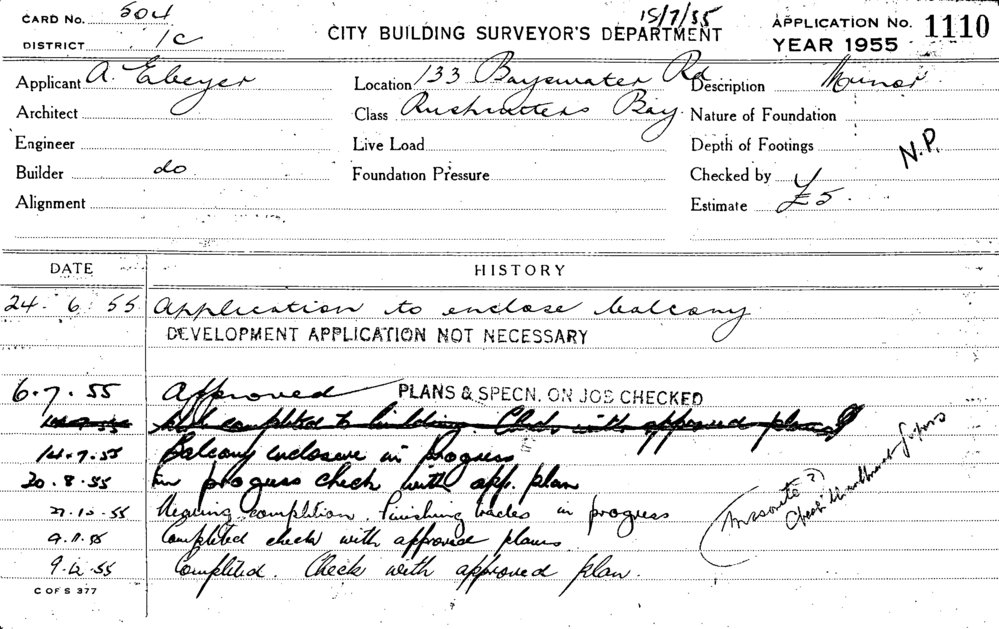 CARD No. 504
15/7/55
CITY BUILDING SURVEYOR'S DEPARTMENT
APPLICATION No. 1110
DISTRICT 1C
YEAR 1955
Applicant A. Ebeyer Location 133 Bayswater Rd Description Minor
Architect Class Rushcutters Bay Nature of Foundation
Engineer Live Load Depth of Footings N.P.
Builder do Foundation Pressure Checked by
Alignment Estimate £5.
DATE HISTORY
24. 6. 55 Application to enclose balcony
DEVELOPMENT APPLICATION NOT NECESSARY
6.7.55 Approved PLANS & SPECN. ON JOB CHECKED
completed to building. Check with approved plans
14.7.55 Balcony enclosure in progress
30.8.55 In progress check with app. plan
27.10.55 Nearing completion. Finishing trades in progress
(Masonite?)
Check
9.11.55 Completed check with approved plans
9.12.55 Completed. Check with approved plan.
C OF S 377